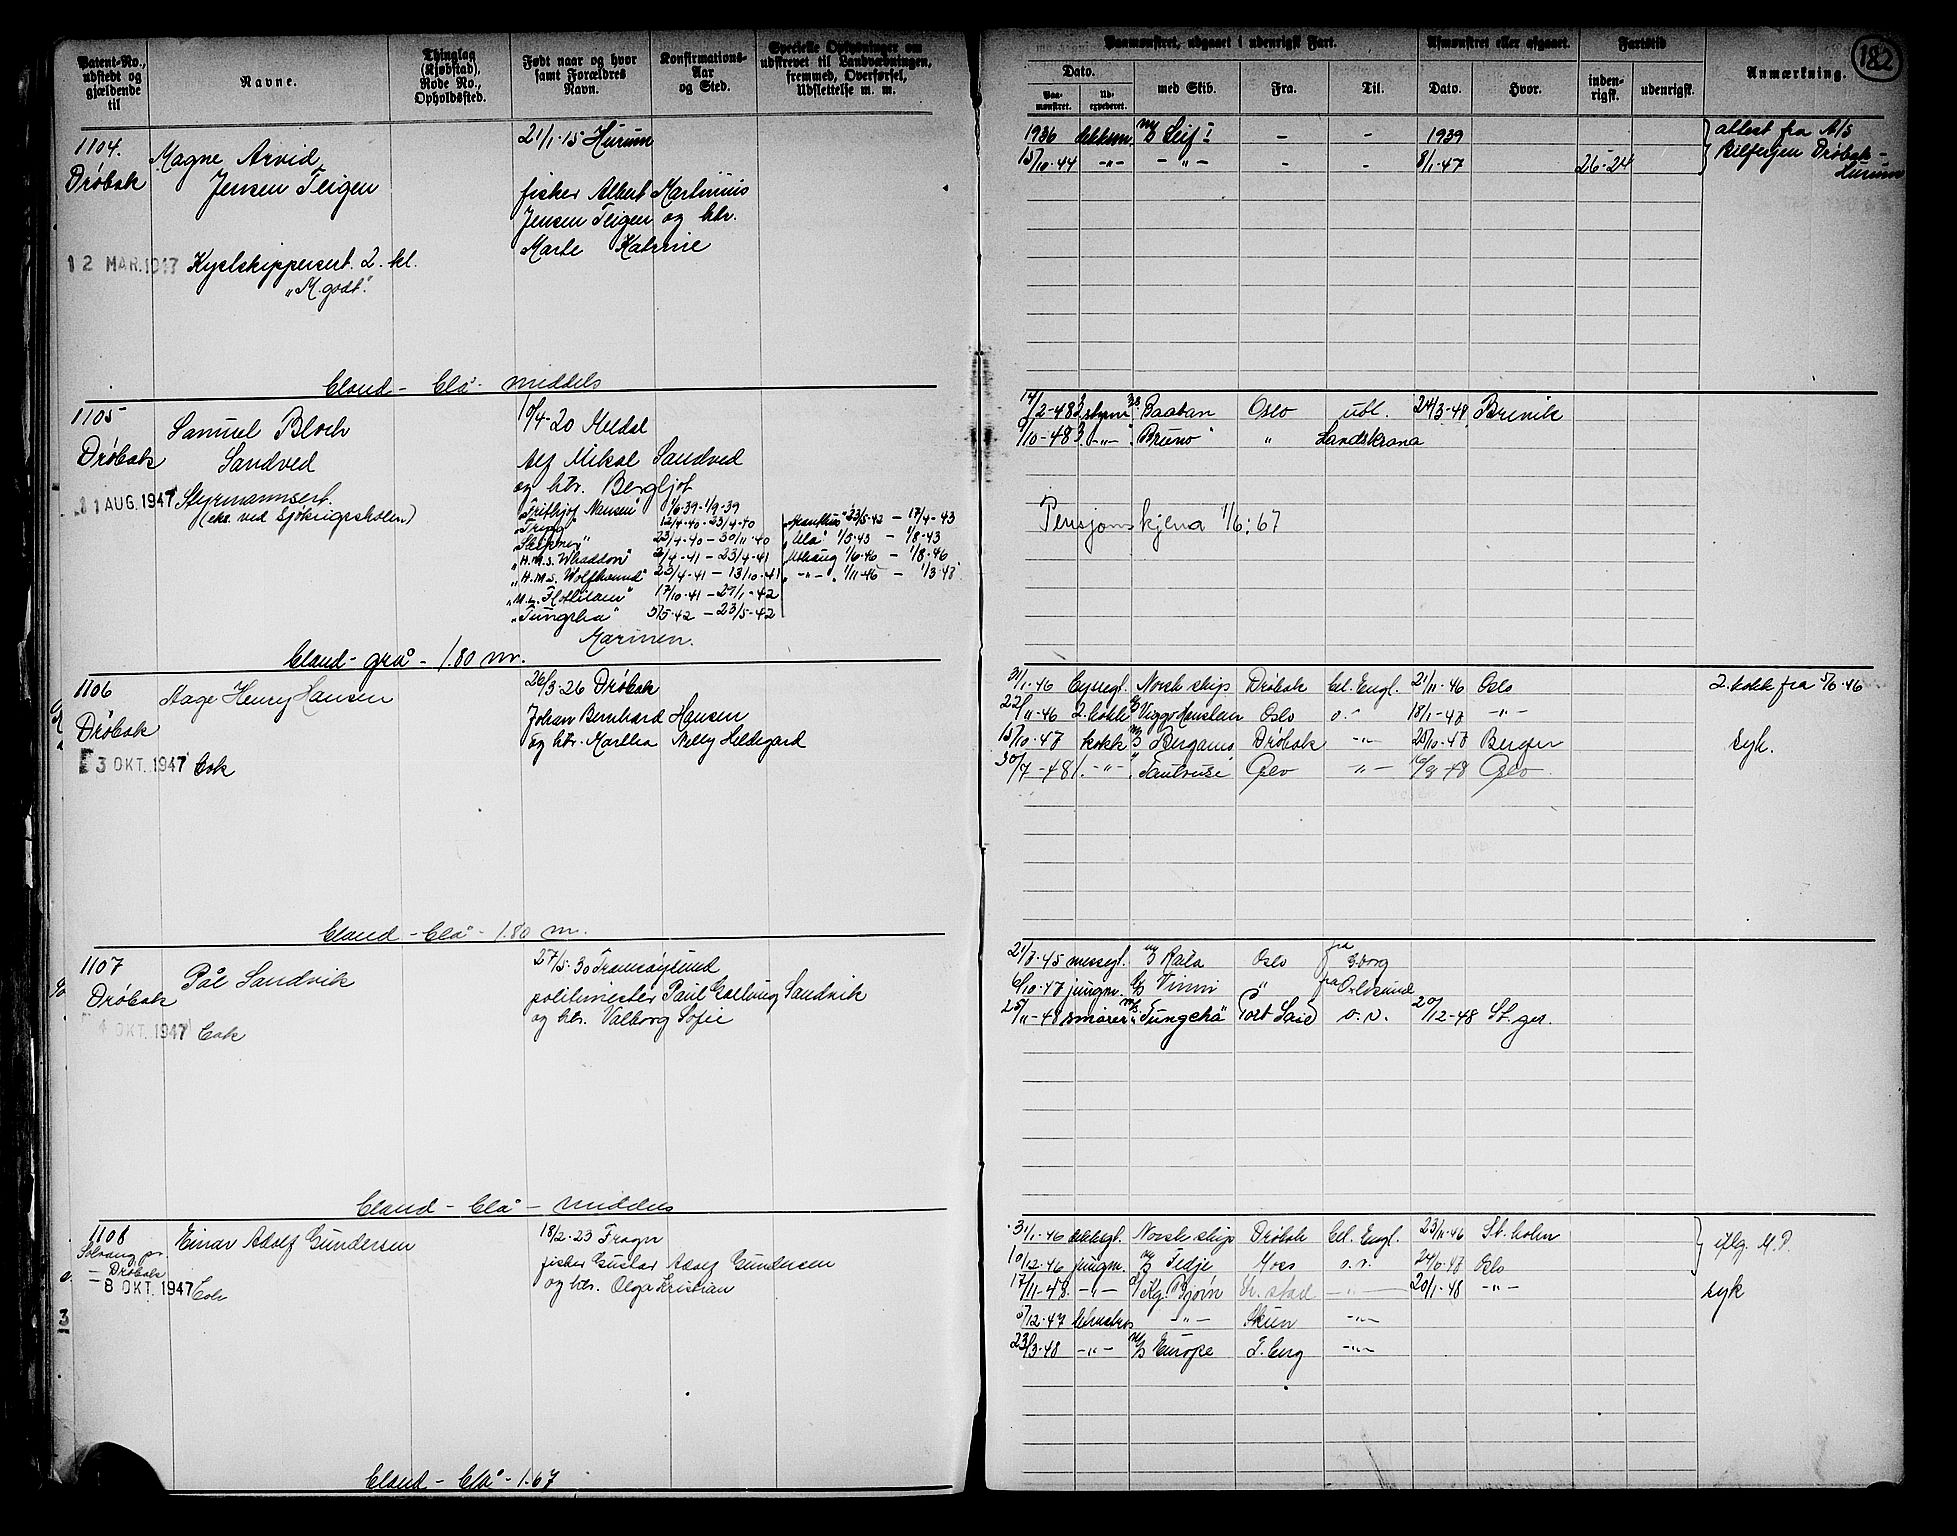 Patent-No., udstedt og gjældende til
Navne.
Thinglag (Kjøbstad), Rode No., Opholdssted.
Født naar og hvor samt Forældres Navn.
Konfirmations-Aar og Sted.
Specielle Oplysninger om udskrevet til Landværbningen, fremmed, Overførsel, Udslettelse m. m.
Paamønstret, udgaaet i udenrigsk Fart.
Afmønstret eller afgaaet.
Farttid
182
Dato.
Paa-mønstret.
Ud-expederet.
med Skib.
Fra.
Til.
Dato.
Hvor.
inden-rigsk.
udenrigsk.
Anmærkning.
1104. Drøbak
Magne Arvid
Jensen Teigen
21/1-15 Hurum
fisker Albert Martinius
Jensen Teigen og htr.
Marte Katrine
12 MAR. 1947 Kystskippersert. 2. kl.
"M. godt".
blond - blå - middels
1936 dekksm. M/S Leif I - - 1939
15/10-44 -"- -"- - - 8/1-47 26-24
attest fra A/S
Bilferjen Drøbak -
Hurum
1105 Drøbak
Samuel Bloch
Sandved
10/4-20 Meldal
Alf Mikal Sandved
og htr. Bergljot
11 AUG. 1947 Styrmannsert.
(eks. ved Sjökrigsskolen)
"Fridtjof Nansen" 1/6-39-1/9-39
12/4-40-23/4-40
"Sleipner" 23/4-40 - 30/11-40
"H.M.S. Whaddon" /4-41 - 23/4-41
"H.M.S. Wolfhound" 23/4-41 - 13/10-41
17/10-41 - 27/1-42
"Tungsha" 5/5-42 - 23/5-42
23/5-42 - 17/4-43
"Ula" 1/5-43 - 1/8-43
1/6-46 - 1/8-46
-"- 1/11-46 - 1/3-48
Marinen.
blond - grå - 1.80 m.
14/2-48 3. styrm. Baaban Oslo utl. 24/3-48 Brevik
9/10-48 3. -"- "Bruno" " Landskrona
Pensjonskjema 1/6: 67
1106 Drøbak
Aage Henry Hansen
26/3-26 Drøbak
Johan Bernhard Hansen
og htr. Martha Nelly Hildegard
3 OKT. 1947 Eek
blond - blå - 1.80 m.
31/1-46 byssegt. Norsk skip Drøbak bel. Engl. 21/11-46 Oslo
22/11-46 2. kokk Viggo Hansteen Oslo o.- 18/1-47 -"-
15/10-47 kokk M/S Bergans Drøbak -"- 25/10-47 Bergen
30/7-48 -"- Oslo -"- /9-48 Oslo
2. kokk fra 5/6-46
syk.
1107 Drøbak
Pål Sandvik
27/5-30 Tromsøysund
politimester Paul Gallung Sandvik
og htr. Valborg Sofie
4 OKT. 1947 Eek
blond - blå - middels
21/7-45 messegt. M/S Kala Oslo fra Gborg
6/10-47 jungm. Vinni " fra Ålesund
25/11-48 smører M/S "Tungsha" Port Said o.v. 20/12-48 St. ger.
1108
Solvang pr.
- Drøbak
Einar Adolf Gundersen
18/2-23 Frogn
fisker Gustav Adolf Gundersen
og htr. Olga Kristian
- 8 OKT. 1947 Eek
blond - blå - 1.67
31/1-46 dekksgt. Norsk skip Drøbak bel. Engl. 23/11-46 St. holm
10/12-46 jungm. M/S Fedje Moss o.v. 24/10-47 Oslo
17/11-48 -"- Kg. Bjørn Fr. stad -"- 20/1-48 -"-
5/12-47 -"- Skien -"-
23/3-48 -"- M/S Europe T. berg -"-
iflg. M.P.
syk